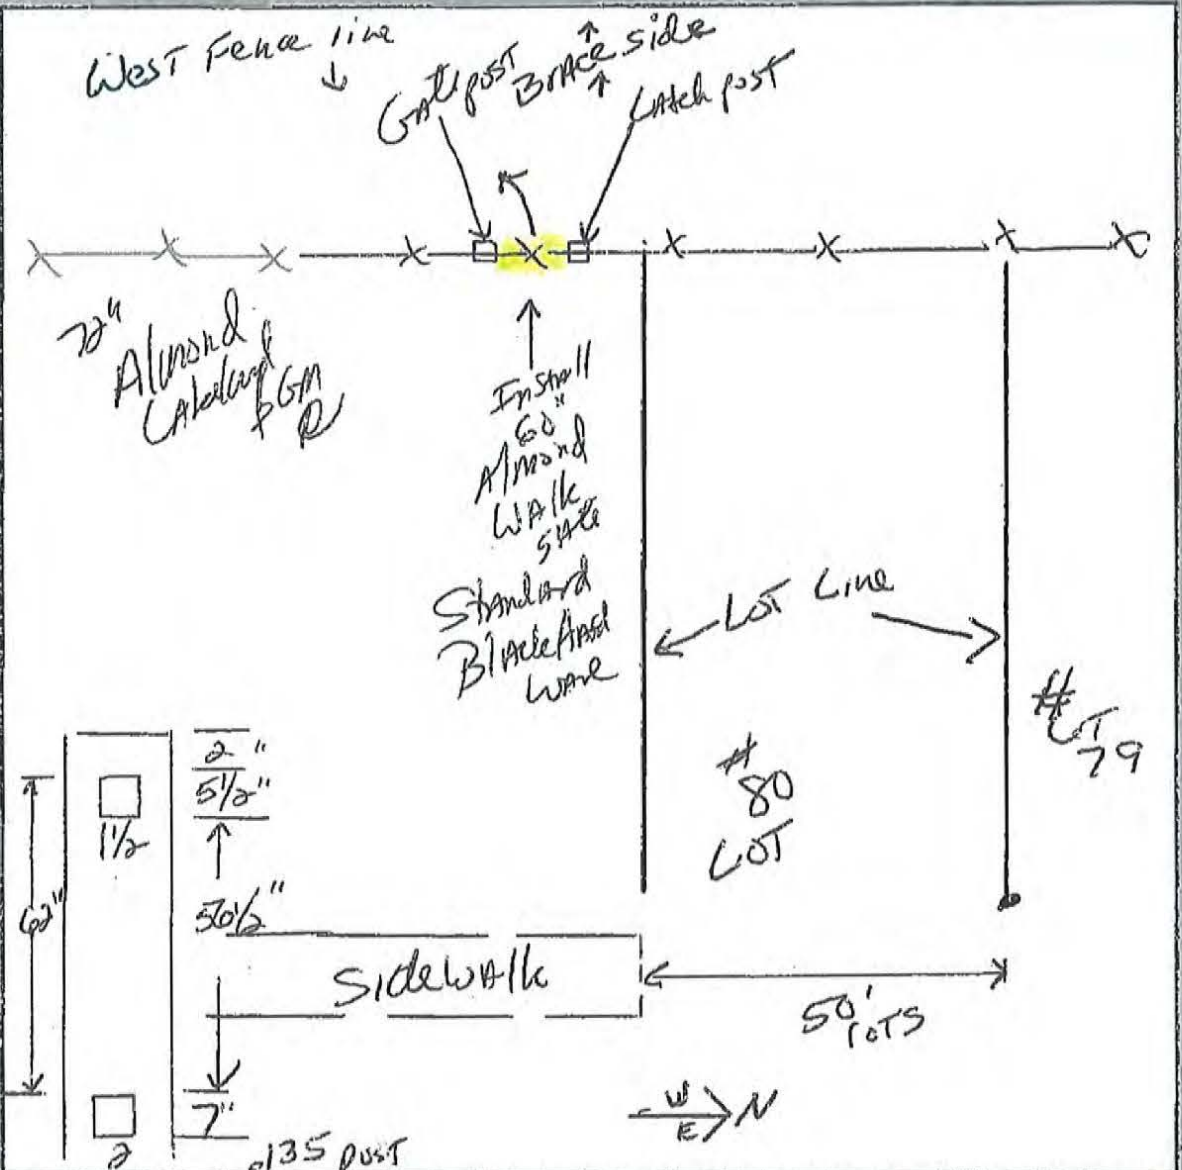 West Fence line
Gate post
Brace side
Latch post
72"
Almond
Lakeland
Install
60"
Almond
Walk
Standard
Black Hard
ware
Lot Line
#
80
LOT
#
LOT
79
2"
5 1/2"
1 1/2
62"
56 1/2"
Sidewalk
50'
LOTS
7"
2
135 post
W
E
N